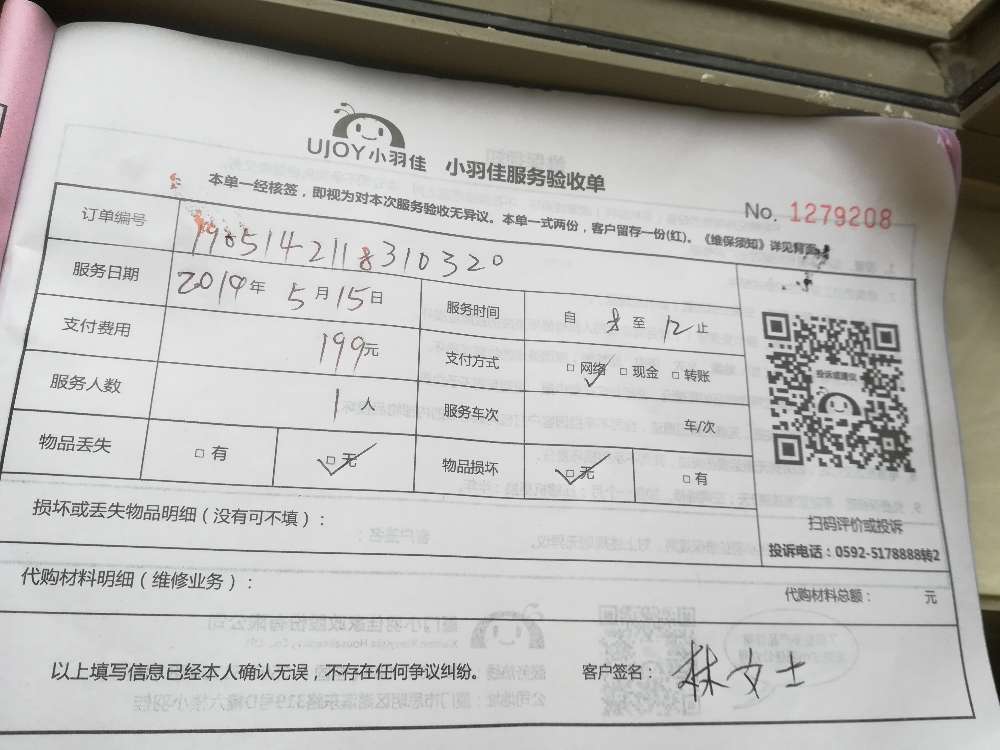 UJOY小羽佳 小羽佳服务验收单
No. 1279208
本单一经核签，即视为对本次服务验收无异议。本单一式两份，客户留存一份(红)。《维保须知》详见背面
订单编号 1905142118310320
服务日期 2019年5月15日 服务时间 自 8 至 12 止
支付费用 199元 支付方式 □网络 □现金 □转账
服务人数 1人 服务车次 车/次
物品丢失 □有 □无 物品损坏 □无 □有
投诉或建议
扫码评价或投诉
投诉电话：0592-5178888转2
损坏或丢失物品明细（没有可不填）：
代购材料明细（维修业务）： 代购材料总额： 元
以上填写信息已经本人确认无误，不存在任何争议纠纷。 客户签名： 林女士